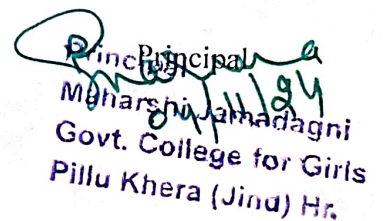 Principal
Principal
Maharshi Jamadagni
Govt. College for Girls
Pillu Khera (Jind) Hr.